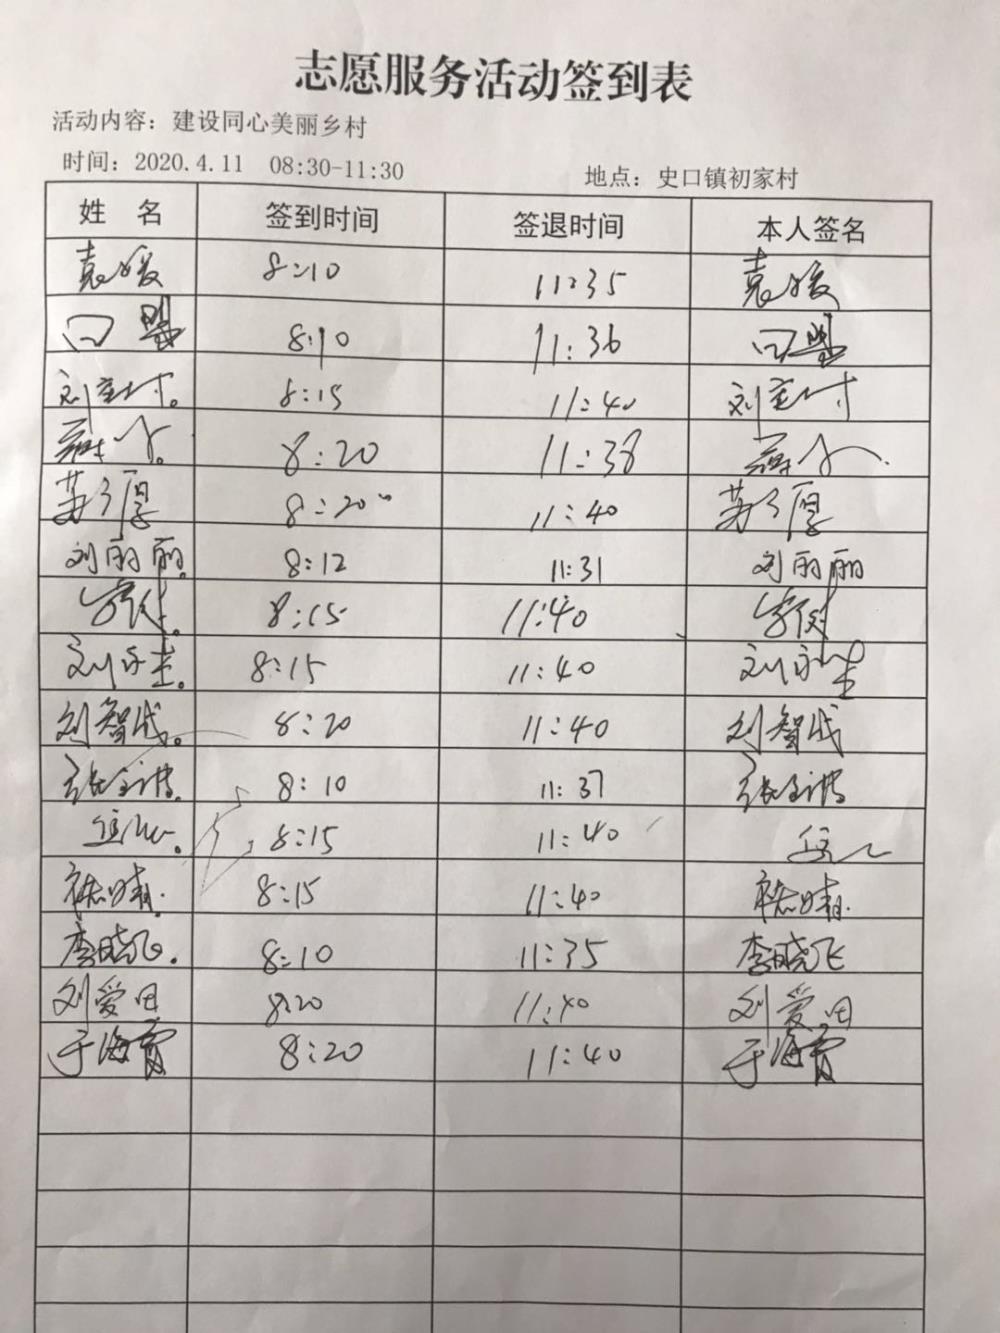 志愿服务活动签到表
活动内容：建设同心美丽乡村
时间：2020.4.11 08:30-11:30 地点：史口镇初家村
姓 名 签到时间 签退时间 本人签名
袁媛 8:10 11:35 袁媛
8:10 11:36
刘 8:15 11:40 刘
8:20 11:38
厚 8:20 11:40 厚
刘丽丽 8:12 11:31 刘丽丽
8:15 11:40
刘 8:15 11:40 刘
刘智成 8:20 11:40 刘智成
张 8:10 11:37 张
8:15 11:40
晴 8:15 11:40 晴
李晓飞 8:10 11:35 李晓飞
刘爱田 8:20 11:40 刘爱田
于海 8:20 11:40 于海